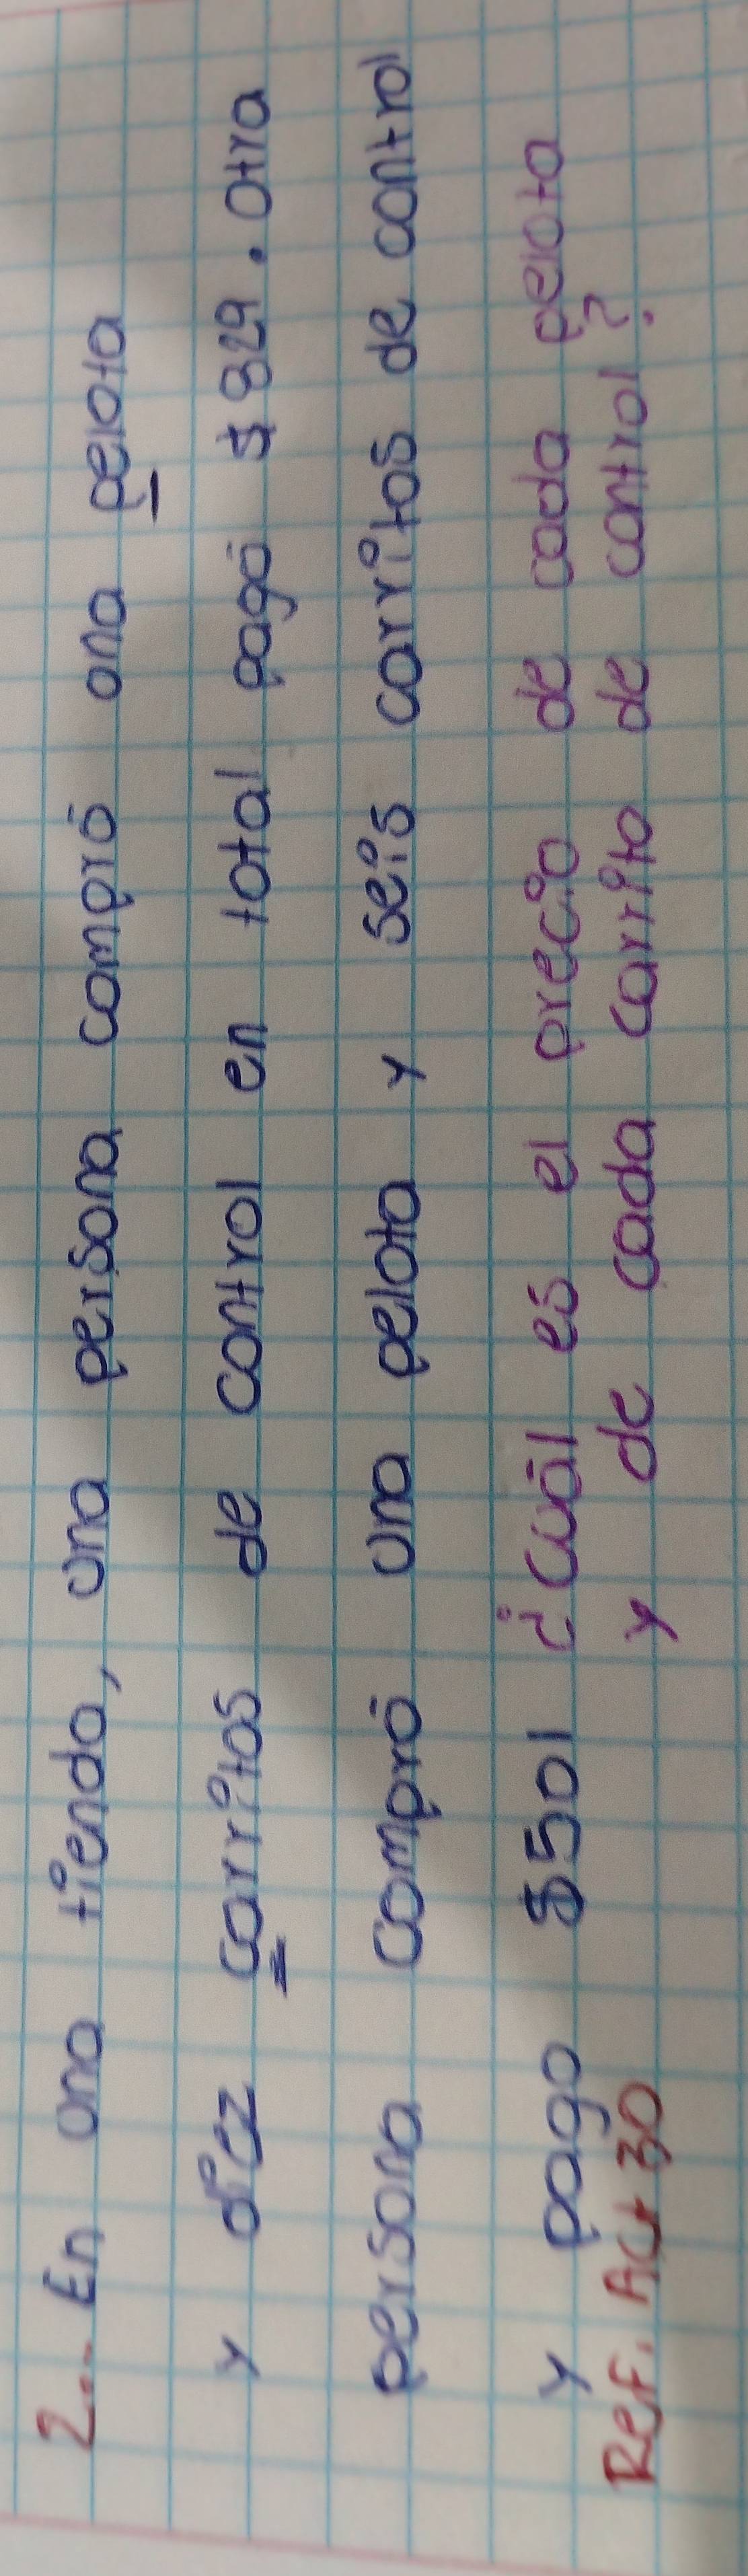 2.- En una tienda, una persona compró una pelota
y diez carritos de control en total pagó $ 829. Otra
persona compró una pelota y seis carritos de control
y pago $501 ¿Cuál es el precio de cada pelota
Ref. Act 30 y de cada carrito de control?